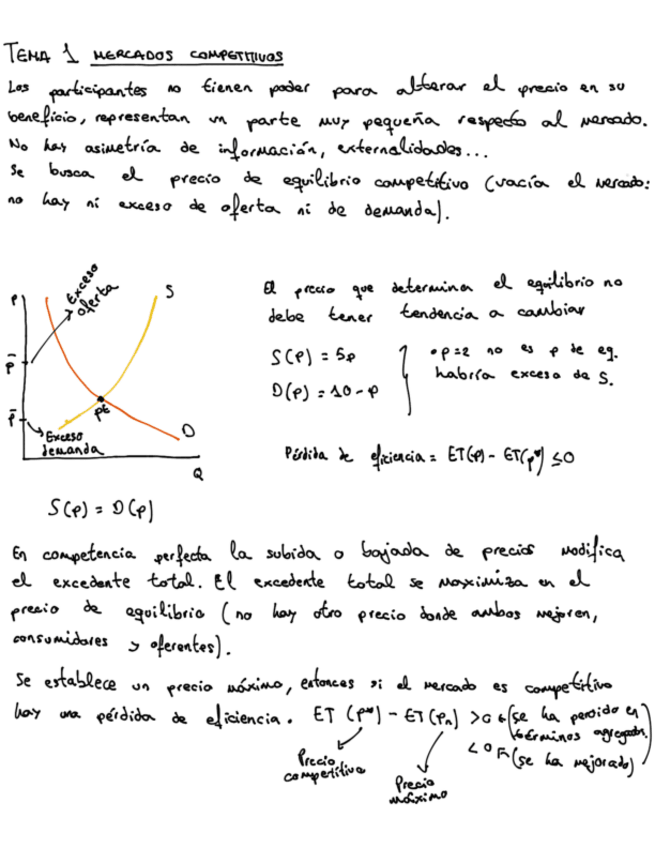 TEMA 1 MERCADOS COMPETITIVOS
Los participantes no tienen poder para alterar el precio en su
beneficio, representan un parte muy pequeña respecto al mercado.
No hay asimetría de información, externalidades...
Se busca el precio de equilibrio competitivo (vacía el mercado:
no hay ni exceso de oferta ni de demanda).
P
Exceso
oferta
S
p̄
pᴱ
p̄
Exceso
demanda
D
Q
El precio que determina el equilibrio no
debe tener tendencia a cambiar
S(p) = 5p
D(p) = 10 - p
• p=2 no es p de eq.
habría exceso de S.
Pérdida de eficiencia = ET(p) - ET(p*) ≤ 0
S(p) = D(p)
En competencia perfecta la subida o bajada de precios modifica
el excedente total. El excedente total se maximiza en el
precio de equilibrio (no hay otro precio donde ambos mejoren,
consumidores y oferentes).
Se establece un precio máximo, entonces si el mercado es competitivo
hay una pérdida de eficiencia. ET (p*) - ET(pₙ) >0 (se ha perdido en
términos agregados)
<0 (se ha mejorado)
Precio
competitivo
Precio
máximo